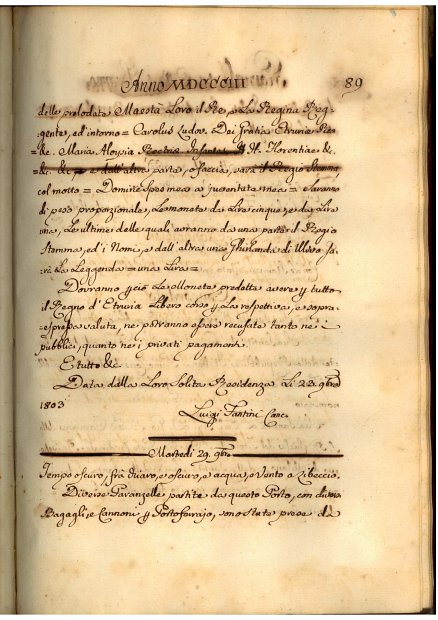 Anno MDCCCIII 89
delle prelodate Maestà Loro il Re, e La Regina Reg-
gente, ed intorno = Carolus Ludov. Dei Gratia Etruriæ Rex
&c. Maria Aloysia H. Florentiae &c.
&c. &c. = e dall'altra parte, o faccia, sarà il Regio Stemma
col motto = Domine Spes mea a juventute mea = e saranno
di peso proporzionale, Le monete da Lire cinque, e da Lire
una, Le ultime delle quali avranno da una parte il Regio
Stemma, ed i Nomi, e dall'altra una Ghirlanda di Ulivo sa-
rà La Leggenda = una Lira =
Dovranno perciò Le Monete predette avere p tutto
il Regno d'Etruria Libero corso p La respettiva, e sopra-
espressa valuta, ne potranno essere recusate tanto nei
pubblici, quanto nei privati pagamenti.
E tutto &c.
Data dalla Loro Solita Residenza Li 23. 9bre
1803
Luigi Fantini Canc.
Martedì 29. 9bre
Tempo oscuro, frà Chiaro, e oscuro, e acqua, e Vento a Libeccio.
Diverse Paranzelle partite da questo Porto, con diversi
Bagagli, e Cannoni p Portoferrajo, sono state prese da